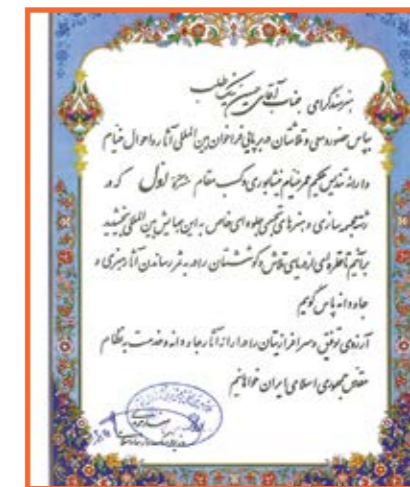 هنرمند گرامی جناب آقای حسین نیک طلب
بپاس حضور و سعی و تلاشتان در برپایی فراخوان بین المللی آثار و احوال خیام
و ارائه تندیس حکیم عمر خیام نیشابوری و کسب مقام اول که در
رشته مجسمه سازی و هنرهای تجسمی جلوه ای خاص به این همایش بین المللی بخشیدید
برآنیم تا قطره ای از دریای تلاش و کوششتان را در به ثمر رساندن آثار هنری و
جاودانه پاس گوییم
آرزوی توفیق و سرافرازیتان را در ارائه آثار جاودانه و خدمت به نظام
مقدس جمهوری اسلامی ایران خواهانیم